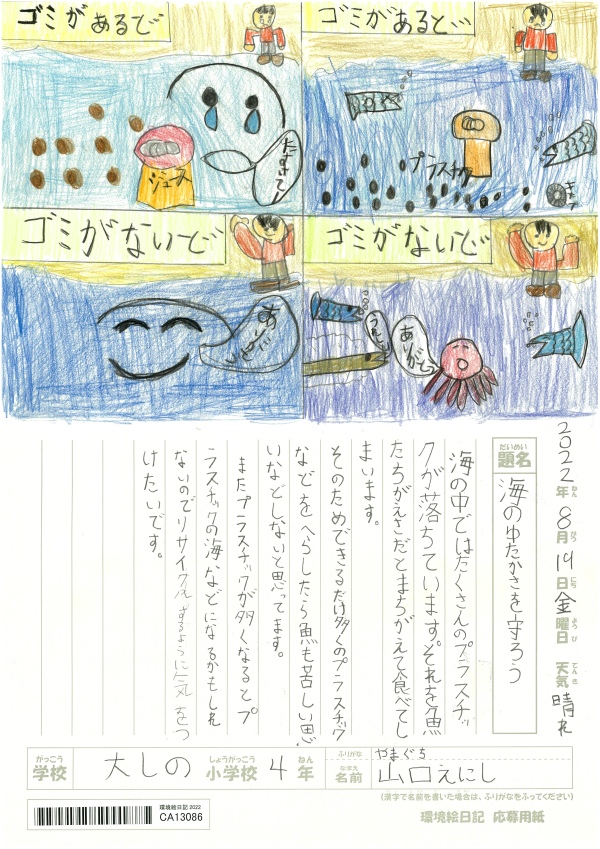 ゴミがあるで
たすけて
ジュース
ゴミがあると…
プラスチック
ゴミがないで
ゴミがないで
ありがとう
2022年ねん8月がつ19日にち金曜日ようび 天気てんき晴れ
題名だいめい 海のゆたかさを守ろう
海の中ではたくさんのプラスチッ
クが落ちています。それを魚
たちがえさだとまちがえて食べてし
まいます。
そのためできるだけ多くのプラスチック
などをへらしたら魚も苦しい思
いなどしないと思ってます。
またプラスチックが多くなるとプ
ラスチックの海などになるかもしれ
ないのでリサイクルするように気をつ
けたいです。
がっこう しょうがっこう ねん ふりがな やまぐち
学校 大しの 小学校 4年 なまえ 名前 山口えにし
(漢字で名前を書いた場合は、ふりがなをふってください)
環境絵日記 2022
CA13086
環境絵日記 応募用紙